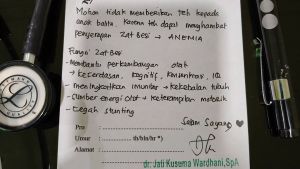 Mohon tidak memberikan teh kepada
anak balita karena teh dapat menghambat
penyerapan zat besi → ANEMIA
Fungsi zat besi
- Membantu perkembangan otak
→ kecerdasan, kognitif, komunikasi, IQ
- meningkatkan imunitas → kekebalan tubuh
- Sumber energi otot → keterampilan motorik
- Cegah stunting
Salam Sayang
Pro :
Umur : th/bln/hr *)
Alamat :
dr. Jati Kusuma Wardhani, SpA